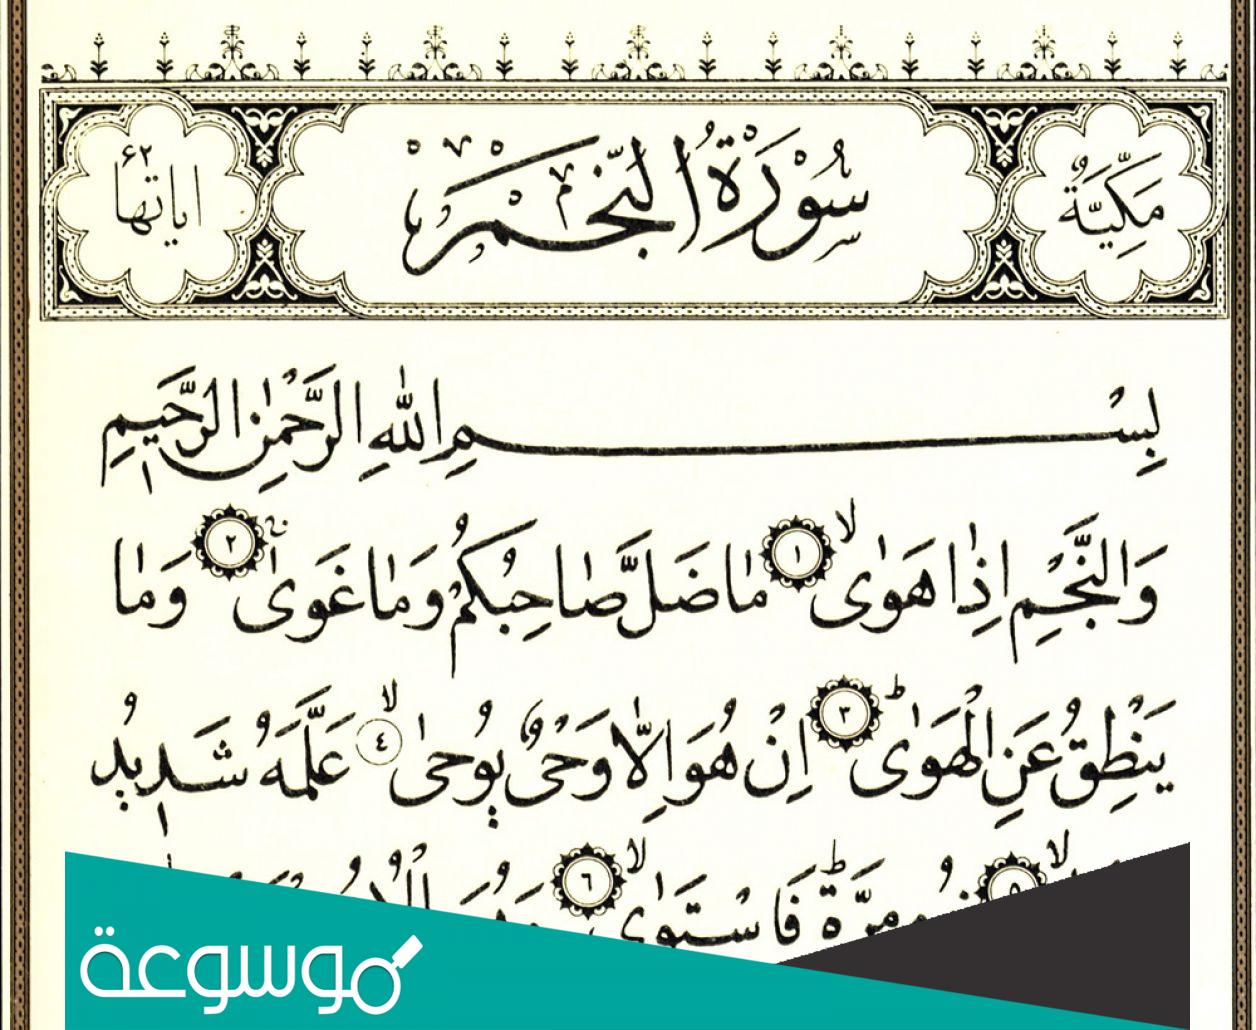 مَكِّيَّةٌ سُوْرَةُ النَّجْمِ اٰيَاتُهَا ٦٢
بِسْمِ اللّٰهِ الرَّحْمٰنِ الرَّحِيْمِ
وَالنَّجْمِ اِذَا هَوٰىۙ ١ مَا ضَلَّ صَاحِبُكُمْ وَمَا غَوٰىۚ ٢ وَمَا
يَنْطِقُ عَنِ الْهَوٰىؕ ٣ اِنْ هُوَ اِلَّا وَحْىٌ يُّوحٰىۙ ٤ عَلَّمَهُ شَدِيْدُ
ۙ ٥ مِرَّةٍؕ فَاسْتَوٰىۙ ٦
موسوعة